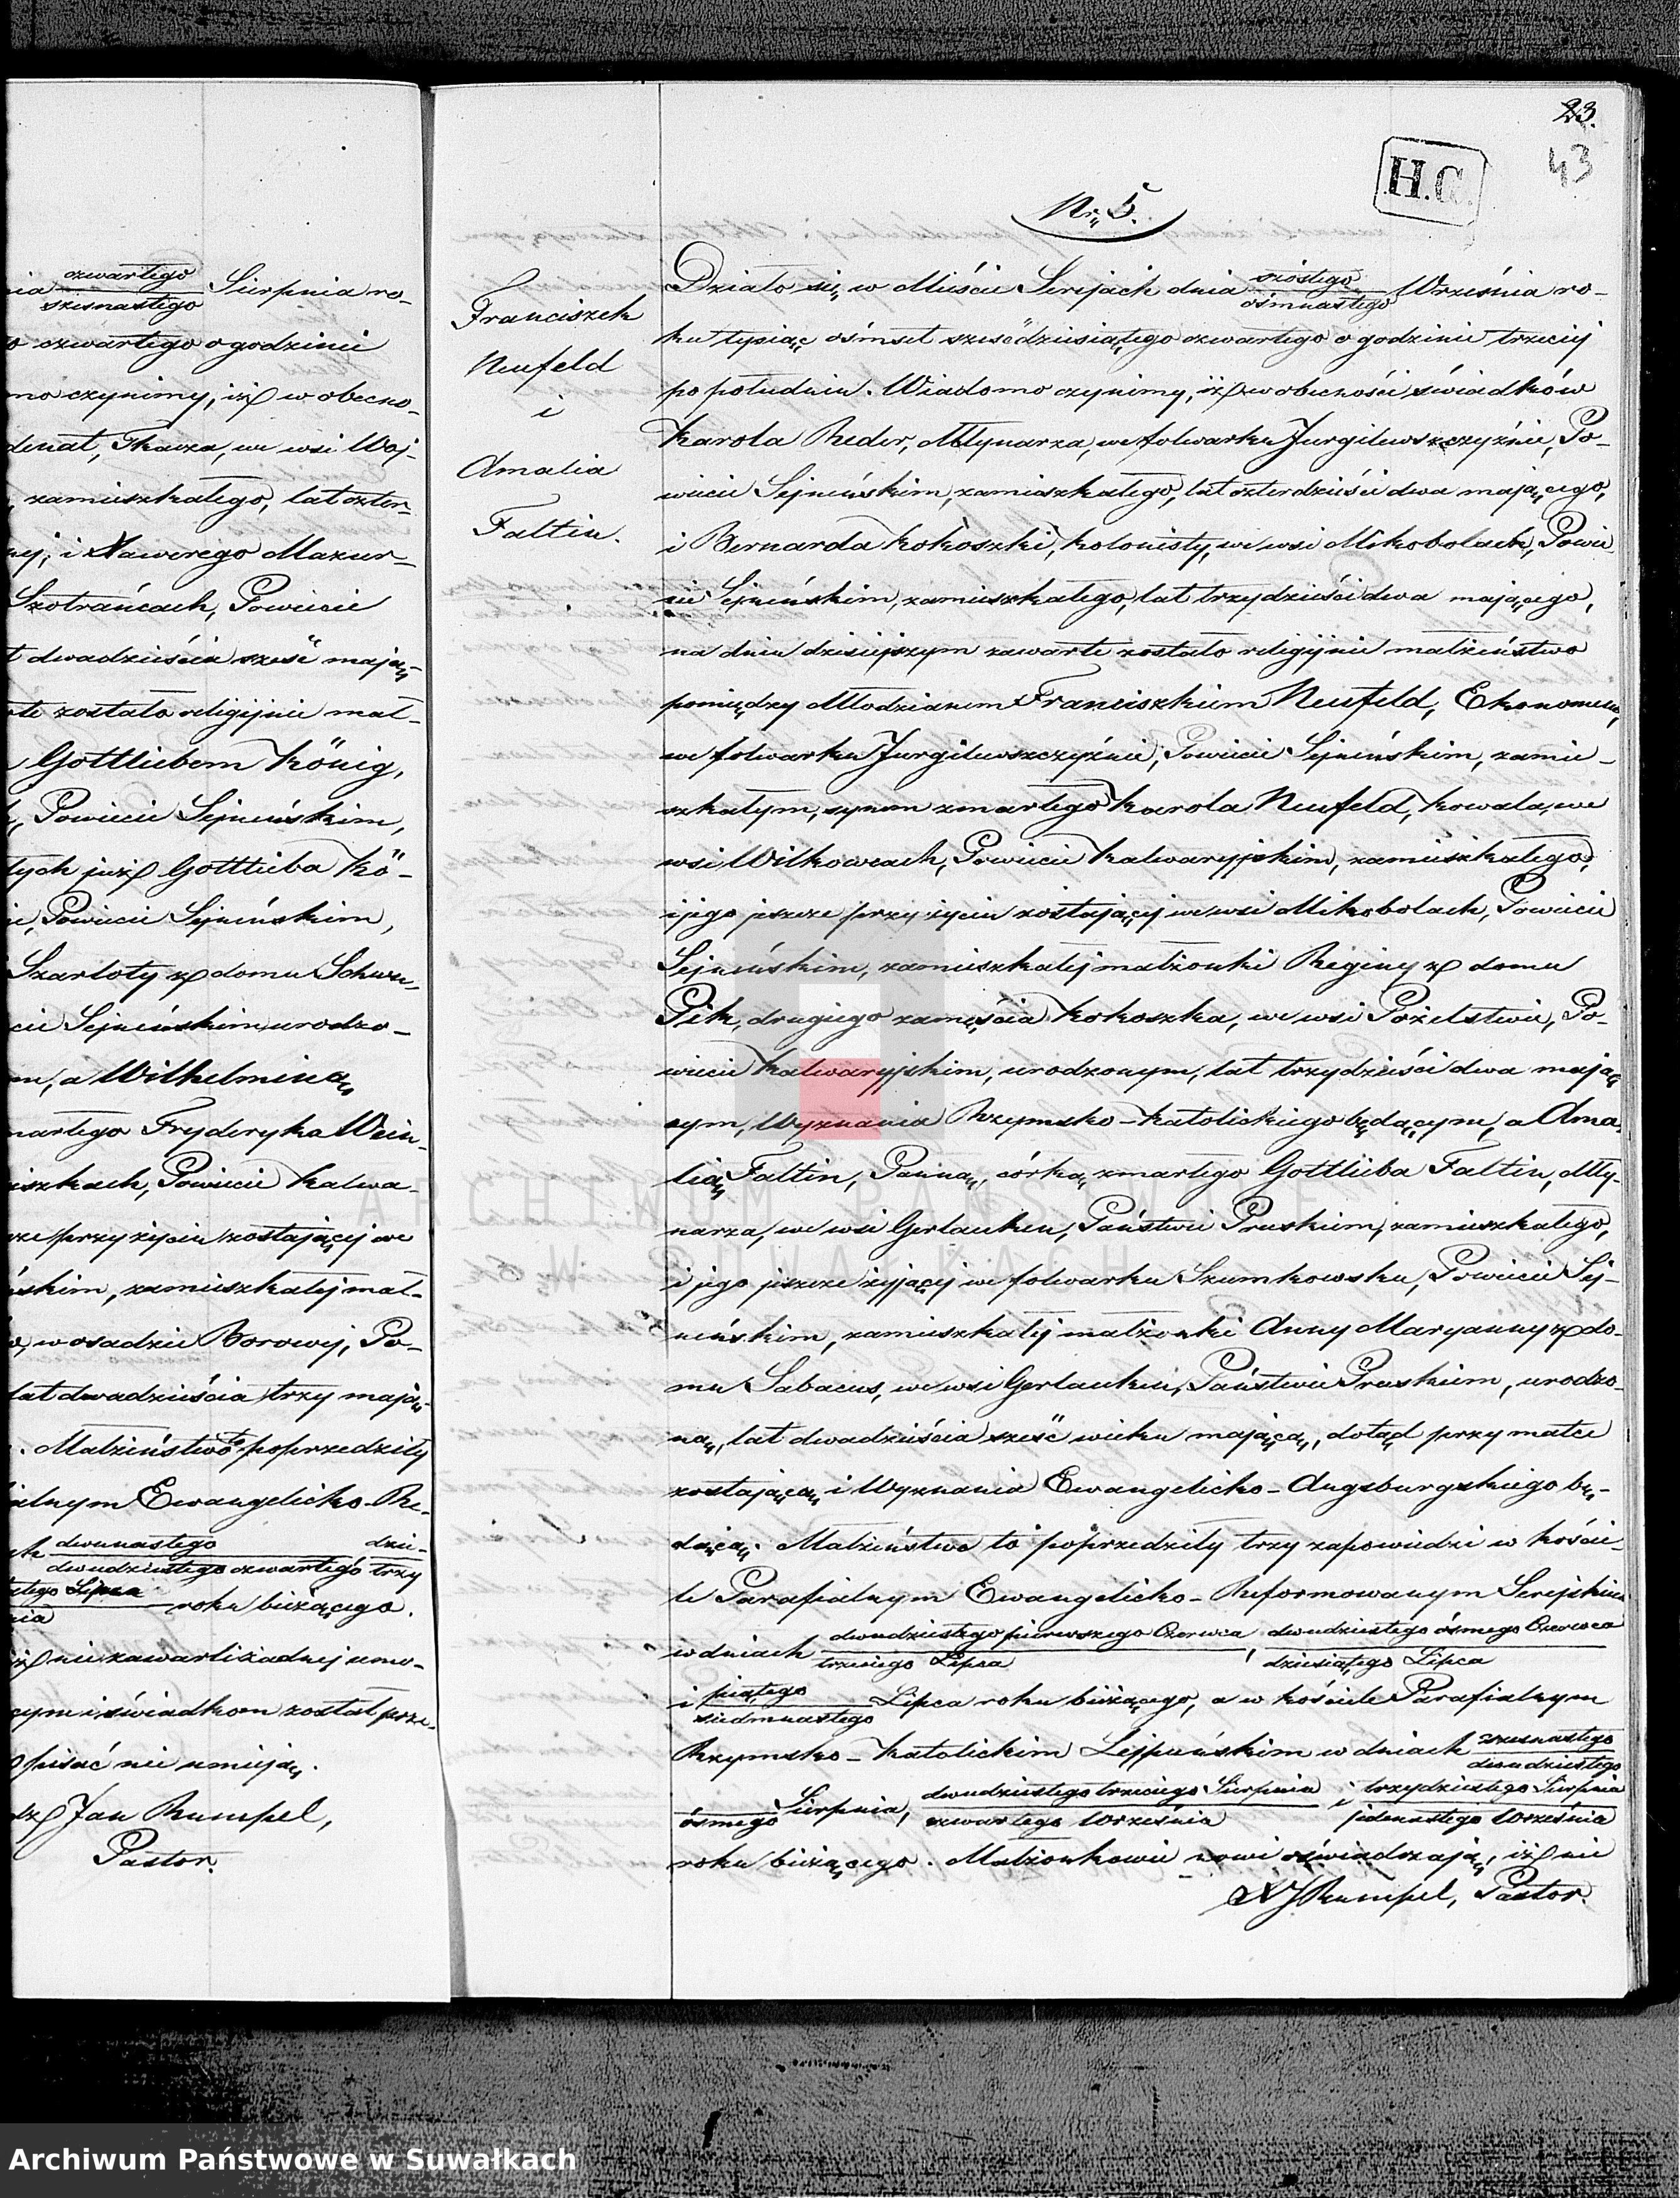 czwartego
nia Sierpnia ro-
szesnastego
o czwartego o godzinie
mo czynimy, iż w obecno-
denat, Tkacza, we wsi Woj-
, zamieszkałego, lat czter-
ney, i Xawerego Mazur-
Szotrańcach, Powiecie
t dwadzieścia sześć mają-
te zostało religijnie mał-
Gottliebem König,
, Powiecie Sejneńskim,
łych już Gottlieba Kö-
ie, Powiecie Sejneńskim,
Szarloty z domu Schwe-
cie Sejneńskim urodzo-
m, a Wilhelminą
martego Fryderyka Wein-
iszkach, Powiecie Kalwa-
sze przy życiu zostającej we
skim, zamieszkałej mał-
o, w osadzie Borowej, Po-
lat dwadzieścia trzy mają-
. Małżeństwo to poprzedziły
ialnym Ewangelicko-Re-
ch dwunastego dzie-
dwudziestego czwartego trzy
tego Lipca roku bieżącego.
nia
iż nie zawarli żadnej umo-
cym i świadkom został prze-
o pisać nie umieją.
dz Jan Rumpel,
Pastor.
23.
43
H.C.
Nr. 5.
Franciszek
Neufeld
i
Amalia
Faltin.
Działo się w Mieście Serejach dnia szóstego / ośmnastego Września ro-
ku tysiąc ośmset sześćdziesiątego czwartego o godzinie trzeciej
po południu. Wiadomo czynimy, iż w obecności świadków
Karola Reder, Młynarza, we folwarku Jurgilewszczyźnie, Po-
wiecie Sejneńskim, zamieszkałego, lat czterdzieści dwa mającego,
i Bernarda Kokoszki, kolonisty, we wsi Mikobolach, Powie-
cie Sejneńskim, zamieszkałego, lat trzydzieści dwa mającego,
na dniu dzisiejszym zawarte zostało religijnie małżeństwo
pomiędzy Młodzianem Franciszkiem Neufeld, Ekonomem,
we folwarku Jurgilewszczyźnie, Powiecie Sejneńskim, zamie-
szkałym, synem zmarłego Karola Neufeld, kowala, we
wsi Wilkowcach, Powiecie Kalwaryjskim, zamieszkałego,
i jego jeszcze przy życiu zostającej we wsi Mikobolach, Powiecie
Sejneńskim, zamieszkałej małżonki Reginy z domu
Pik, drugiego zamęścia Kokoszka, we wsi Pożelstwie, Po-
wiecie Kalwaryjskim, urodzonym, lat trzydzieści dwa mają-
cym, Wyznania Rzymsko-Katolickiego będącym, a Ama-
lią Faltin, Panną, córką zmarłego Gottlieba Faltin, Mły-
narza, we wsi Gerlauken, Państwie Pruskiem, zamieszkałego,
i jego jeszcze żyjącej we folwarku Szumkowsku, Powiecie Sej-
neńskim, zamieszkałej małżonki Anny Maryanny z do-
mu Sabacus, we wsi Gerlauken, Państwie Pruskiem, urodzo-
ną, lat dwadzieścia sześć wieku mającą, dotąd przy matce
zostającą i Wyznania Ewangelicko-Augsburgskiego bę-
dącą. Małżeństwo to poprzedziły trzy zapowiedzi w kości-
le Parafialnym Ewangelicko-Reformowanym Serejskim
w dniach dwudziestego pierwszego Czerwca / trzeciego Lipca , dwudziestego ósmego Czerwca / dziesiątego Lipca
i piątego / siedmnastego Lipca roku bieżącego, a w kościele Parafialnym
Rzymsko-Katolickim Lejpuńskim w dniach szesnastego / dwudziestego
ósmego Sierpnia, dwudziestego trzeciego Sierpnia / czwartego Września i trzydziestego Sierpnia / jedenastego Września
roku bieżącego. Małżonkowie nowi oświadczają, iż nie
X J Rumpel, Pastor.
ARCHIWUM PAŃSTWOWE
W SUWAŁKACH
Archiwum Państwowe w Suwałkach